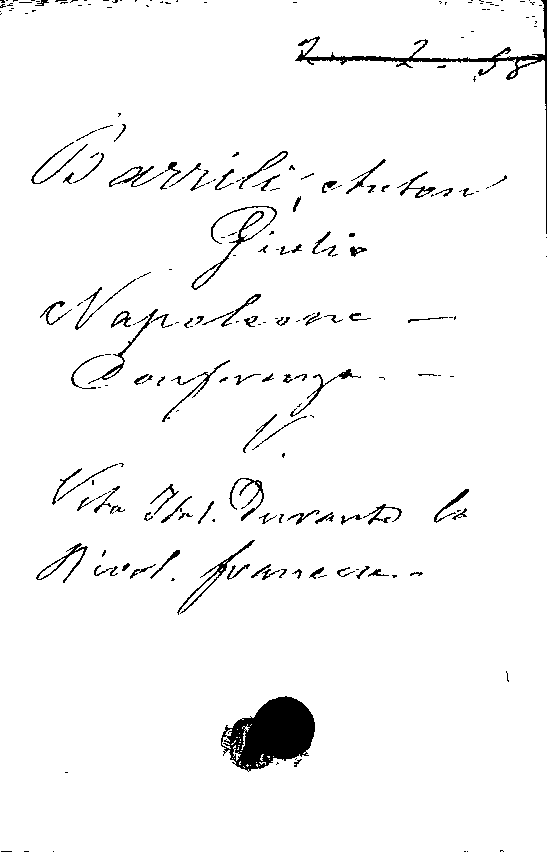 2 - 2 - 58
Barrili, Anton
Giulio
Napoleone —
Conferenza. —
V.
Vita Ital. Durante la
Rivol. francese.-